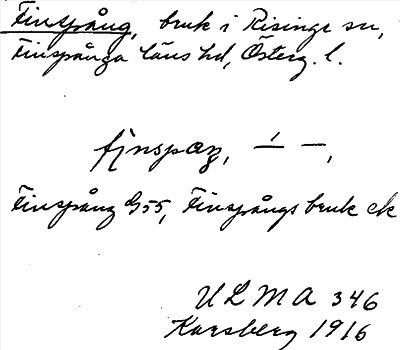 Finspång, bruk i Risinge sn,
Finspånga läns hd, Österg. l.
fịnspaŋ, — ı —,
Finspång G55, Finspångs bruk ek
ULMA 346
Karsberg 1916